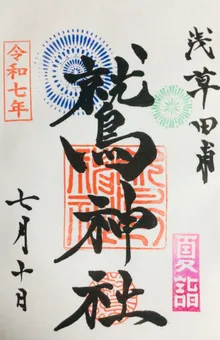 浅草田甫
鷲神社
令和七年
七月十日
夏詣